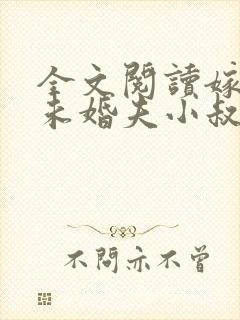 全文閱讀嫁
未婚夫小叔
不問亦不曾